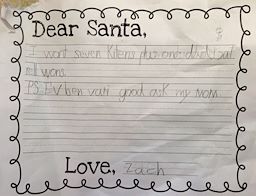 Dear Santa,
I wont seven Kitens plus one
wons.
PS. EV ben vary good ask my Mom
Love, Zach